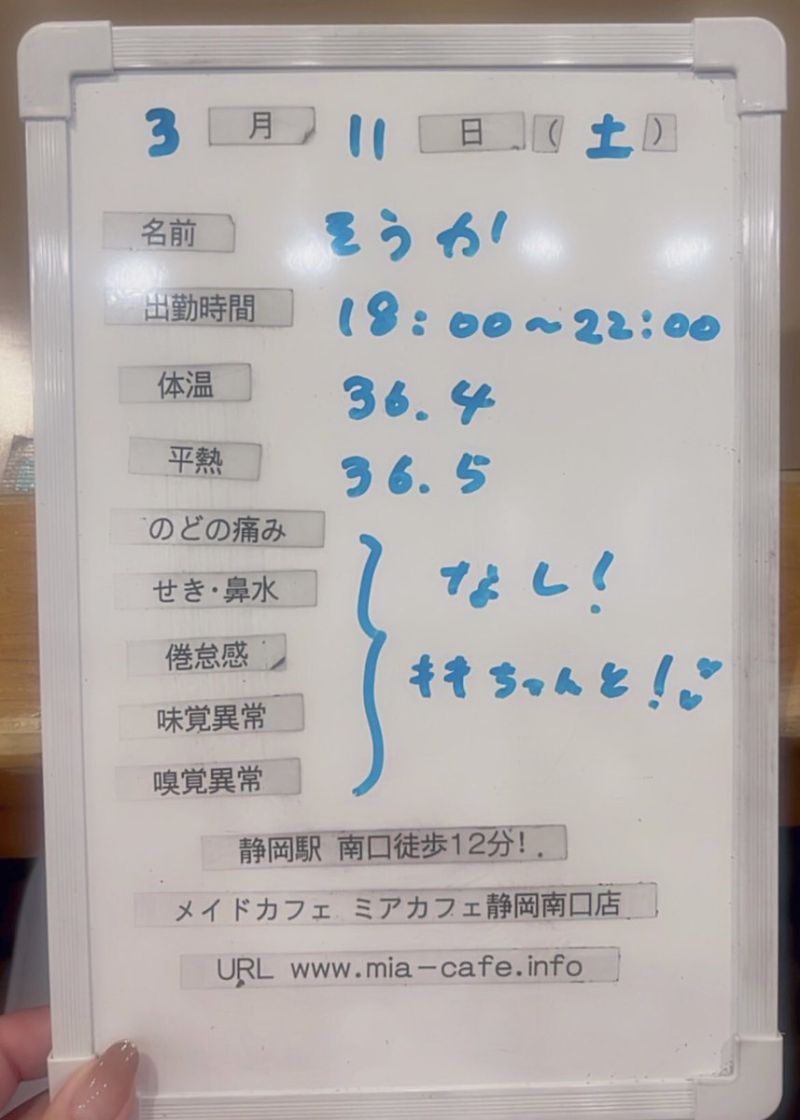 3月11日(土)
名前 そうか
出勤時間 18:00~22:00
体温 36.4
平熱 36.5
のどの痛み
せき・鼻水 なし!
倦怠感 キキちゃんと!
味覚異常
嗅覚異常
静岡駅 南口徒歩12分!.
メイドカフェ ミアカフェ静岡南口店
URL www.mia-cafe.info